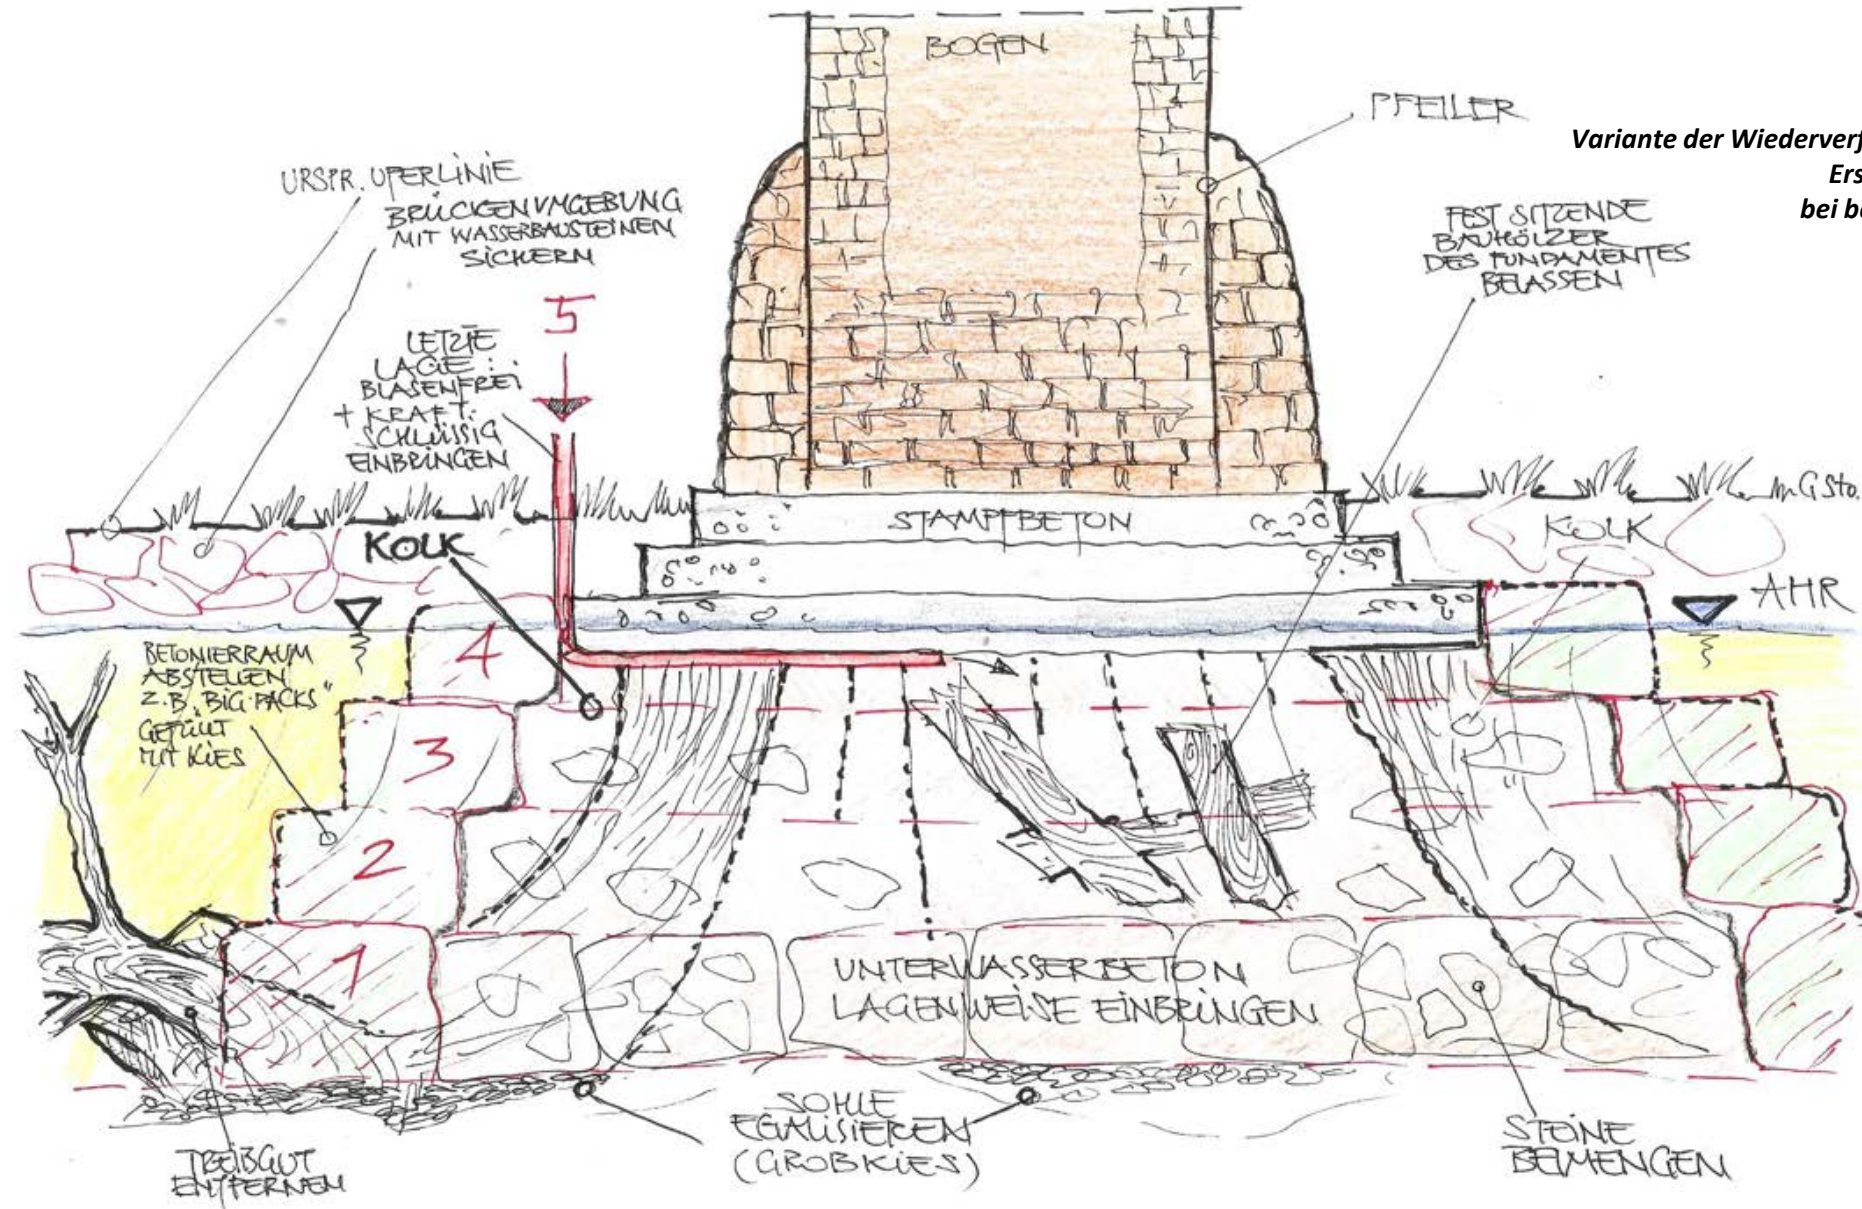 BOGEN
PFEILER
Variante der Wiederverf
Ers
bei b
URSPR. UFERLINIE
BRÜCKENUMGEBUNG
MIT WASSERBAUSTEINEN
SICHERN
FEST SITZENDE
BAUHÖLZER
DES FUNDAMENTES
BELASSEN
5
LETZTE
LAGE:
BLASENFREI
+ KRAFT-
SCHLÜSSIG
EINBRINGEN
STAMPFBETON
KOLK
KOLK
AHR
BETONIERRAUM
ABSTELLEN
Z.B. "BIG-PACKS"
GEFÜLLT
MIT KIES
4
3
2
1
UNTERWASSERBETON
LAGENWEISE EINBRINGEN
SOHLE
EGALISIEREN
(GROBKIES)
TREIBGUT
ENTFERNEN
STEINE
BEIMENGEN